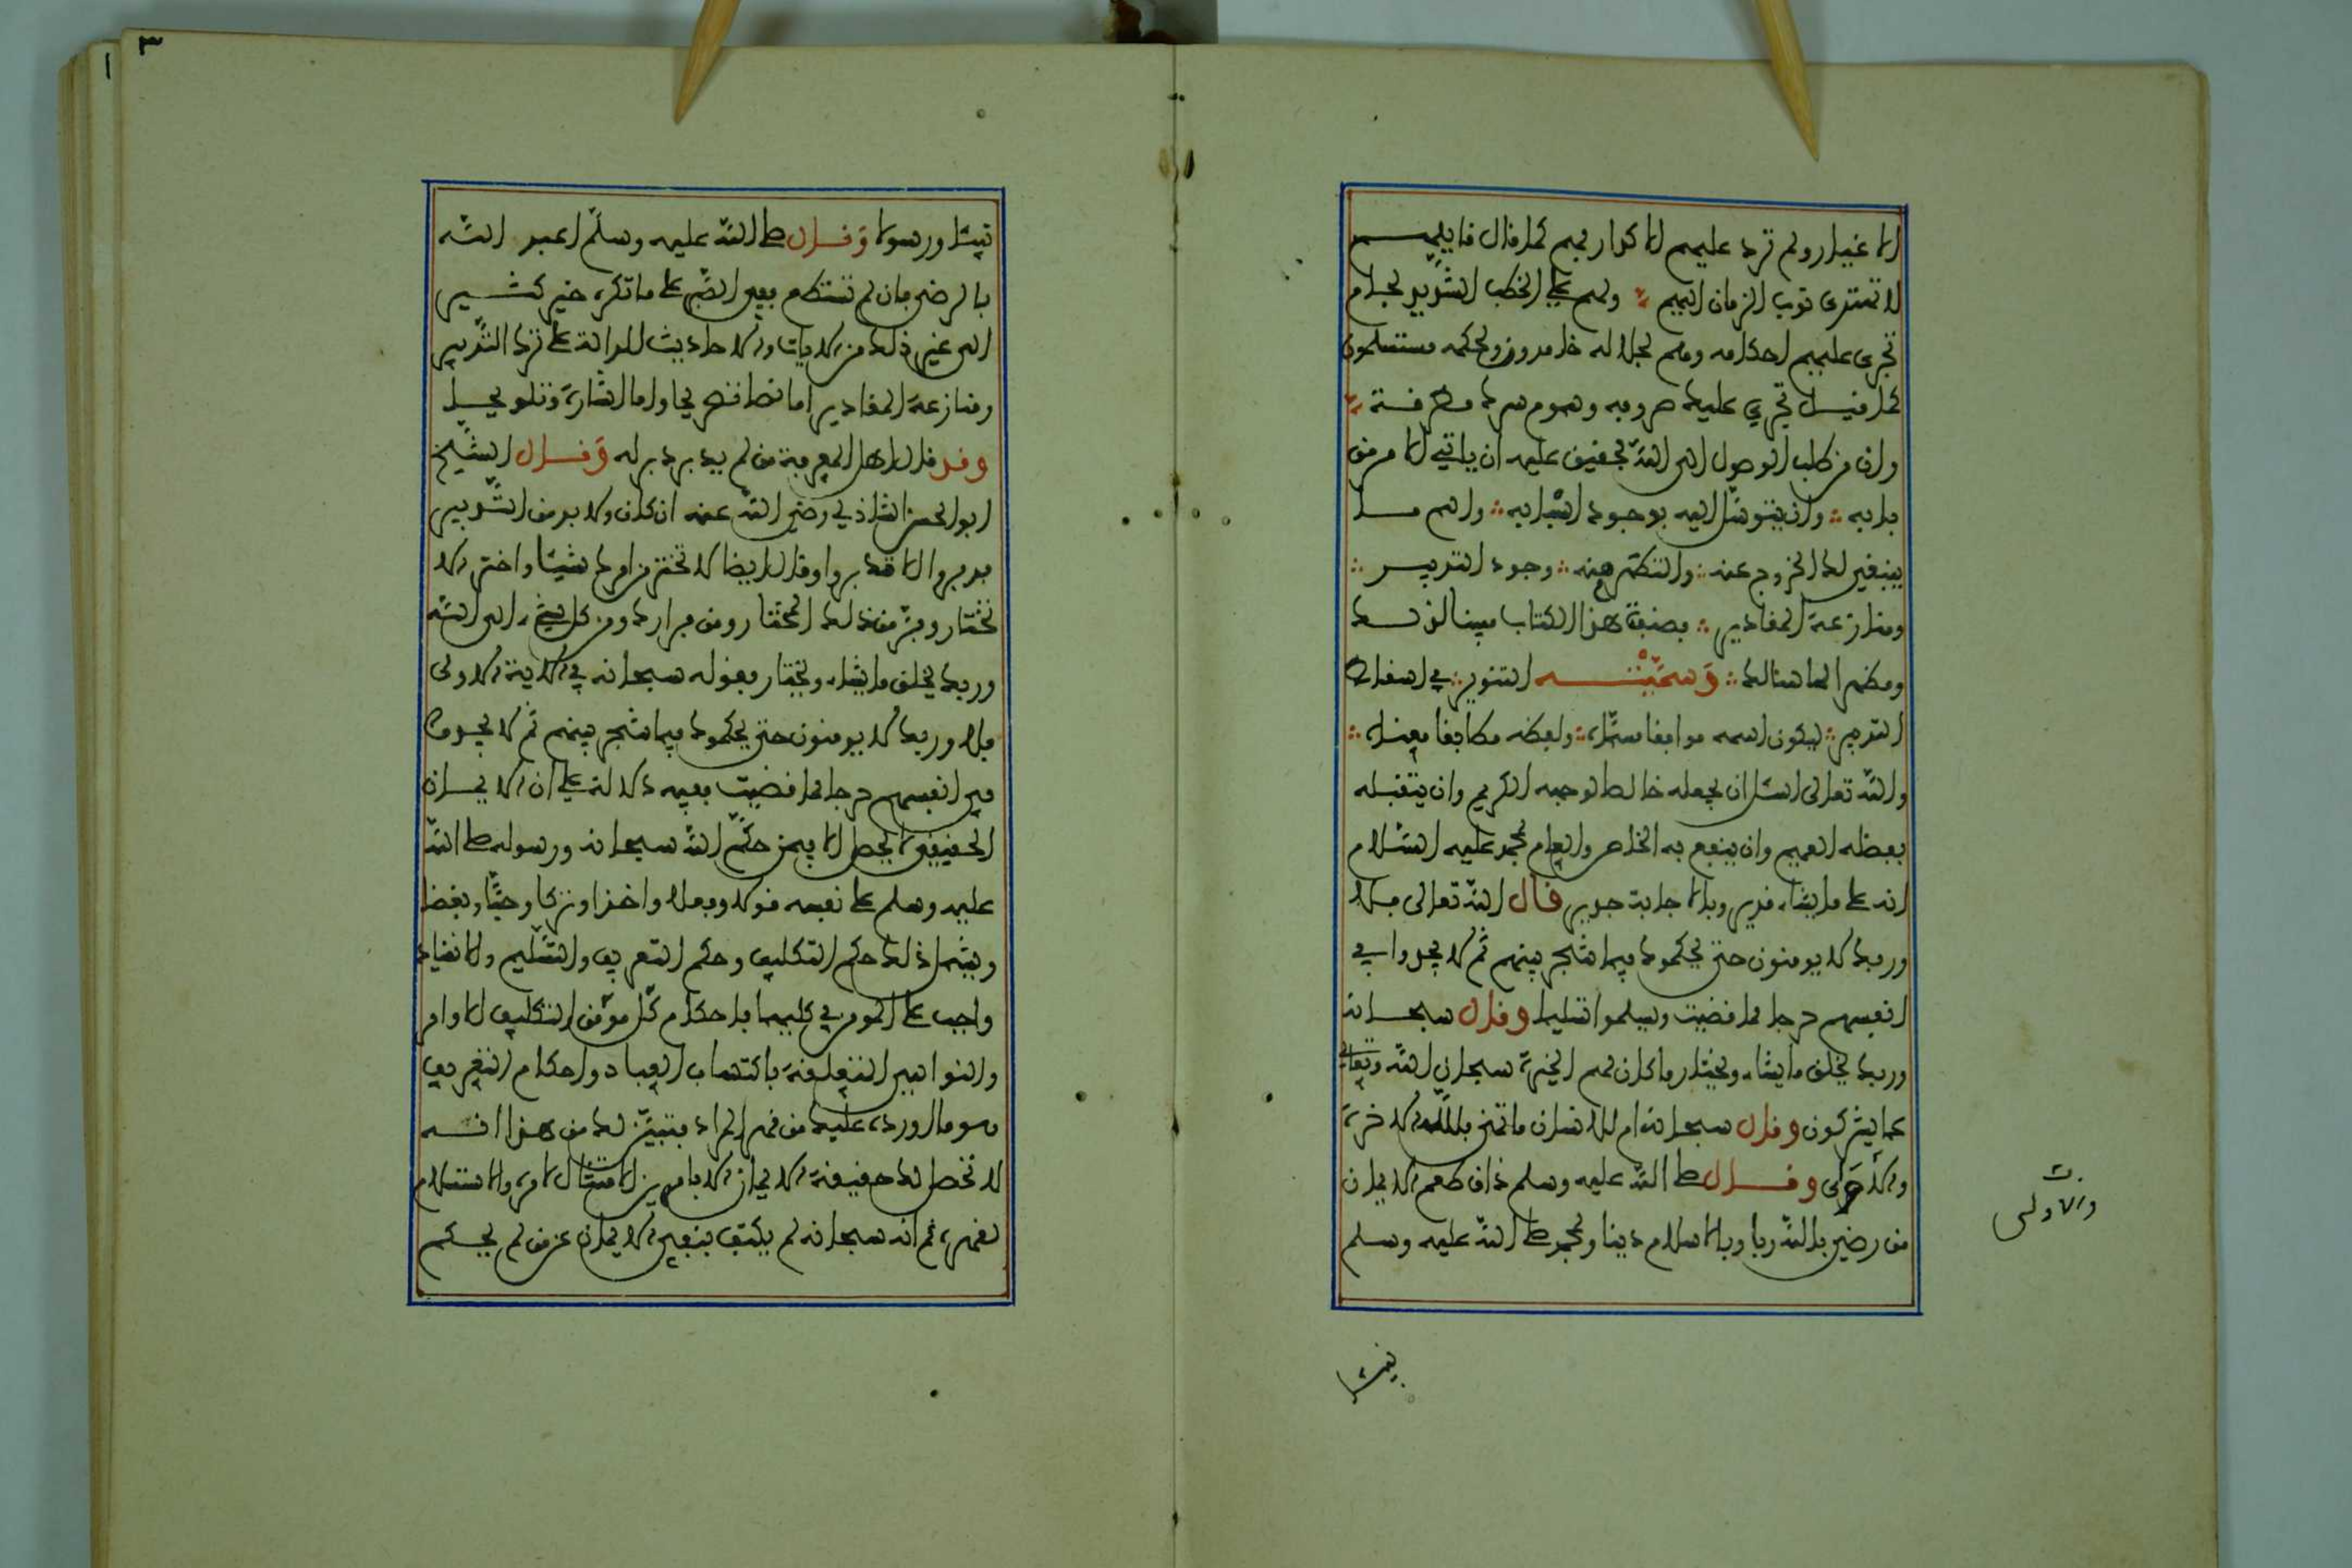 الاغيار ولم ترد عليهم الاكدار بهم كما قال قايلهم
لا تهتدى نوب الزمان اليهم ولهم على الخطب الشديد لجام
تجرى عليهم احكامه وهم لجلاله خامدون ولحكمه مستسلمون
كما قيل تجري عليك صروفه وهموم سرك مطرقة
وان من طلب الوصول الى الله فحقيق عليه ان ياتي الامر من
بابه وان يتوصل اليه بوجود اسبابه واهم ما
ينبغى لك الخروج عنه والتطهر منه وجود التدبير
ومنازعة المقادير فصنفت هذا الكتاب مبينا لذلك
ومظهرا لما هنالك وسميته التنوير في اسقاط
التدبير ليكون اسمه موافقا مسماه ولفظه مطابقا معناه
والله تعالى اسئل ان يجعله خالصا لوجهه الكريم وان يتقبله
بفضله العميم وان ينفع به الخاص والعام بمحمد عليه السلام
انه على ما يشاء قدير وبالاجابة جدير قال الله تعالى فلا
وربك لا يومنون حتى يحكموك فيما شجر بينهم ثم لا يجدوا في
انفسهم حرجا مما قضيت ويسلموا تسليما وقال سبحانه
وربك يخلق ما يشاء ويختار ما كان لهم الخيرة سبحان الله وتعالى
عما يشركون وقال سبحانه ام للانسان ما تمنى فلله الاخرة
والاولى وقال صلى الله عليه وسلم ذاق طعم الايمان
من رضى بالله ربا وبالاسلام دينا وبمحمد صلى الله عليه وسلم
والاولى
نبيئا
نبيئا ورسولا وقال صلى الله عليه وسلم اعبد الله
بالرضى فان لم تستطع ففى الصبر على ما تكره خير كثير
الى غير ذلك من الايات والاحاديث الدالة على ترك التدبير
ومنازعة المقادير اما نصا صريحا واما اشارة وتلويحا
وقد قال اهل المعرفة من لم يدبر دبر له وقال الشيخ
ابو الحسن الشاذلي رضى الله عنه ان كان ولا بد من التدبير
فدبروا الا تدبروا وقال ايضا لا تختر من امرك شيئا واختر الا
تختار وفر من ذلك المختار ومن فرارك ومن كل شيء الى الله
وربك يخلق ما يشاء ويختار فقوله سبحانه في الاية الاولى
فلا وربك لا يومنون حتى يحكموك فيما شجر بينهم ثم لا يجدوا
فى انفسهم حرجا مما قضيت ففيه دلالة على ان الايمان
الحقيقى لا يحصل الا لمن حكم الله سبحانه ورسوله صلى الله
عليه وسلم على نفسه قولا وفعلا واخذا وتركا وحبا وبغضا
ويشمل ذلك حكم التكليف وحكم التعريف والتسليم والانقياد
واجب على المومن في كليهما فاحكام كل مؤمن التكليف الاوامر
والنواهى المتعلقة باكتساب العباد واحكام التعريف
هو ما اورده عليك من قهر المراد فتبين لك من هذا انه
لا تحصل لك حقيقة الايمان الا بامرين الامتثال لامره والاستسلام
لقهره ثم انه سبحانه لم يكتف بنفى الايمان عن من لم يحكم